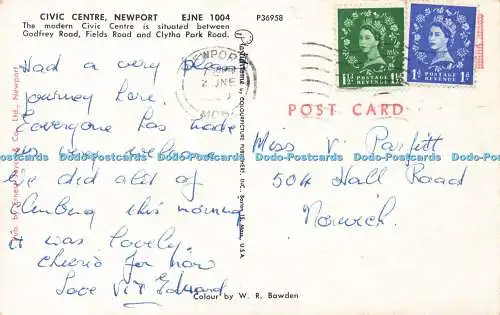 CIVIC CENTRE, NEWPORT EJNE 1004 P36958
The modern Civic Centre is situated between
Godfrey Road, Fields Road and Clytha Park Road.
Had a very
journey here.
Everyone has made
us very welcome
We did alot of
climbing this morning
it was lovely.
cheerio for now
Love Vi & Edward
Colour by W. R. Bawden
COLOURPICTURE PUBLISHERS, INC., Boston 15, Mass., U.S.A.
NEWPORT
2 JNE
MON
POSTAGE
REVENUE
1½D
POSTAGE
REVENUE
1D
POST CARD
Miss V. Parfitt
504 Hall Road
Norwich.
Dodo-Postcards Dodo-Postcards Dodo-Postcards Dodo-Postcards